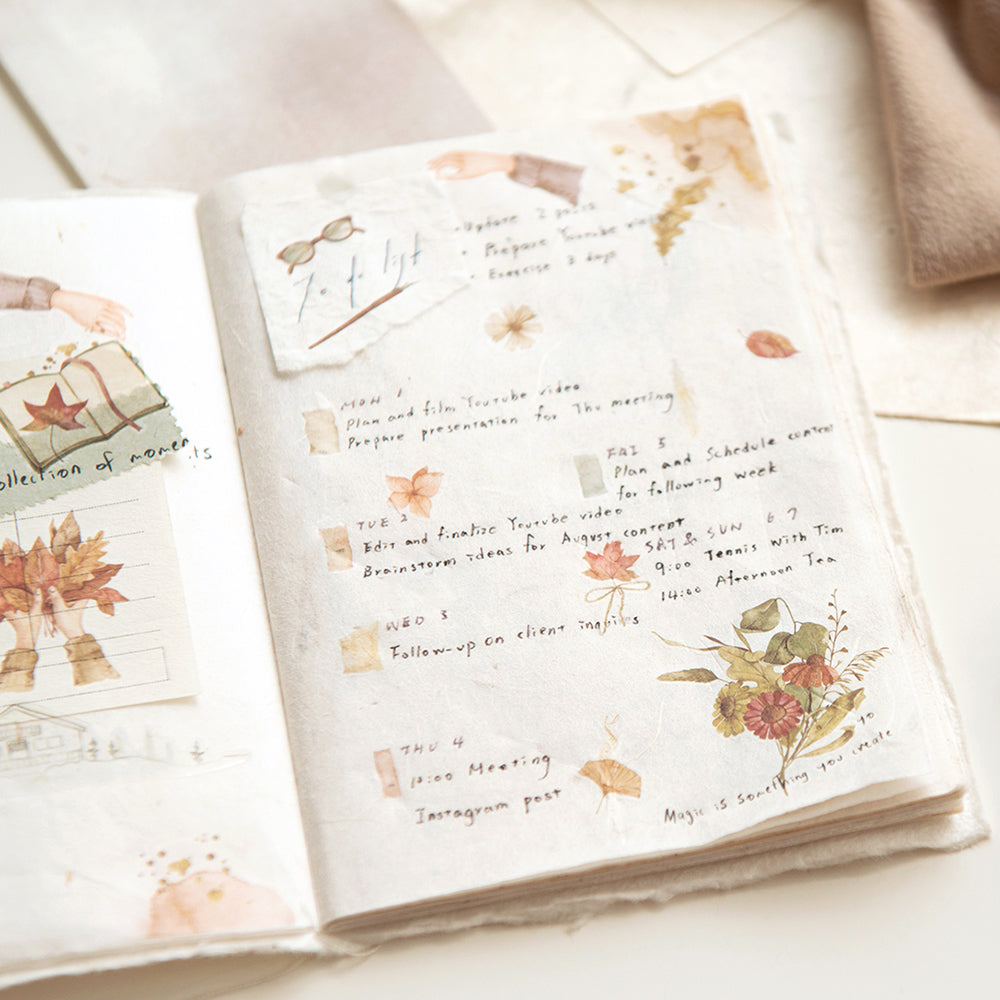 ollection of moments
To do list
• Update 2 posts
• Prepare Youtube video
• Exercise 3 days
MON 1
Plan and film Youtube video
Prepare presentation for Thu meeting
TUE 2
Edit and finalize Youtube video
Brainstorm ideas for August content
WED 3
Follow-up on client inquiries
THU 4
10:00 Meeting
Instagram post
FRI 5
Plan and Schedule content
for following week
SAT & SUN 6 7
9:00 Tennis with Tim
14:00 Afternoon Tea
Magic is something you create